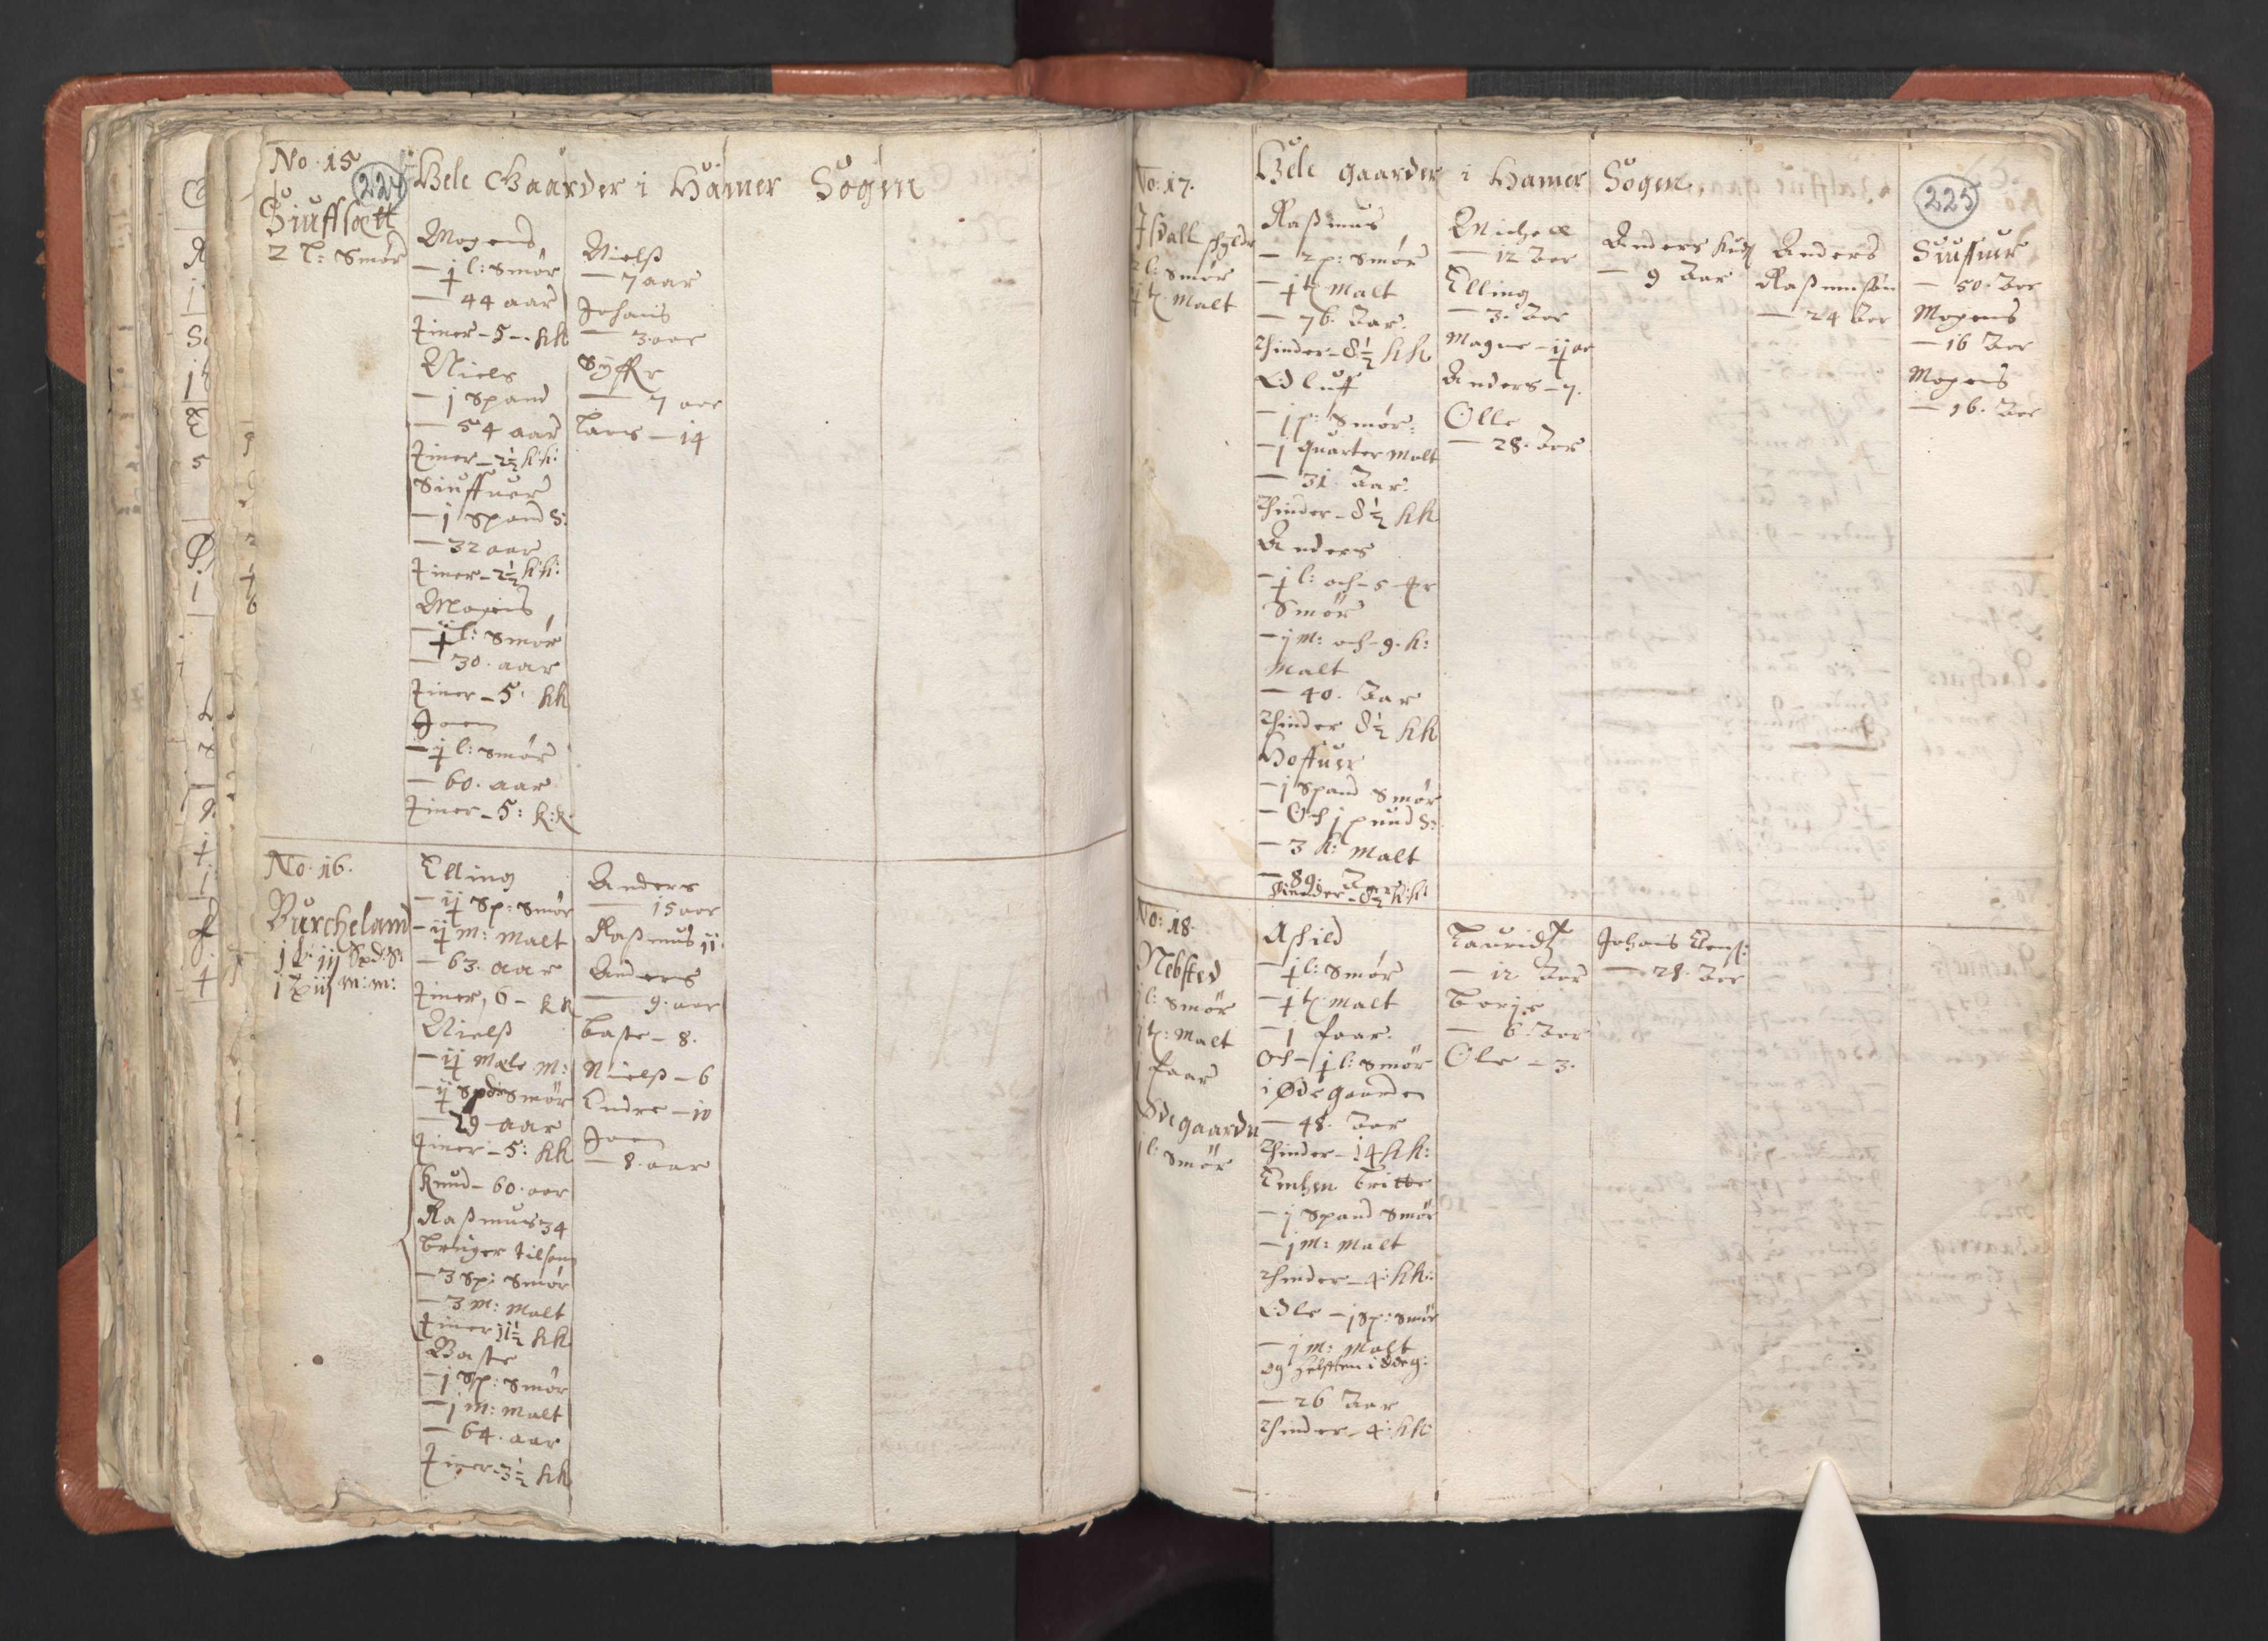 No. 15
224
Hele Gaarder i Hamer Sogen
Siuffsett
2 l: Smør
Mogens
— j l: Smør
— 44 aar
tiner – 5 – kk
Niels
— j Spand
— 54 aar
tiner – 2½ k:k:
Siuffuer
— j Spand S:
— 32 aar
tiner – 2½ k:k:
Mogens
— j l: Smør
— 30. aar
tiner – 5: kk
Joen
— j l: Smør
— 60. aar
tiner – 5: k:k:
Nielß
— 7 aar
Johanis
— 3. aar
Syffr
— 7 aar
Lars – 14
No. 16.
Burcheland
j l: iij Spd: S:
j t iij m: m:
Elling
— ij Sp: Smør
— ij m: Malt
— 63. aar
tiner, 6 – kk
Nielß
— ij Mele M:
— ij Spd Smør
— 29 – aar
tiner – 5: kk
Knud – 60. aar
Raßmus 34
bruger tilsamen
— 3 Sp: Smør
— 3. m: Malt
tiner 11½ kk
Baste
— j Sp: Smør
— j m: Malt
— 64. aar
tiner – 3½ kk
Anders
— 15 aar
Raßmus 11.
Anders
— 9. aar
Baste – 8.
Nielß – 6
Endre – 10
Joen
— 8. aar
No: 17.
Hele gaarder i Hamer Sogen
225
Isdall schyldr
2 l: Smør
j t Malt
Raßmus
— 2 p: Smør
— j t Malt
— 76. Aar.
thinder – 8½ kk
Oluff
— j p: Smør:
— j quarter Malt
— 31. Aar.
thinder – 8½ kk
Anders
— j l: och – 5 –
Smør
— j m: och – 9. k:
Malt
— 40. Aar
thinder 8½ kk
Hoffuer
— j Spand Smør
— Och j pund S:
— 3 k: Malt
— 89: Aar
thinder – 8½ k:k:
Michell
— 12 Aar
Elling
— 3. Aar
Magne – ij ar
Anders – 7.
Olle
— 28. Aar
Anders
— 9 Aar
Anders
Raßmusøn
— 24 Aar
Siuffuer
— 50. Aar
Mogens
— 16 Aar
Mogens
— 16. Aar
No: 18.
Nebsted
j l: Smør
j t: Malt
j faar
Ødegaarden
j l: Smør
Ashild
— j l: Smør
— j t Malt
— j faar.
Och – j l: Smør
i Ødegaarden
— 48. Aar
thinder – 14 kk:
Enchen britte
— j Spand Smør
— j m: Malt
thinder – 4: kk:
Ole – j sp: Smør
— j m: Malt
og helfften i Ødeg:
— 26 Aar
thinder – 4: kk:
Lauridtz
— 12 Aar
Børje
— 6. Aar
Ole – 3.
Johanis Jens:
— 28. Aar